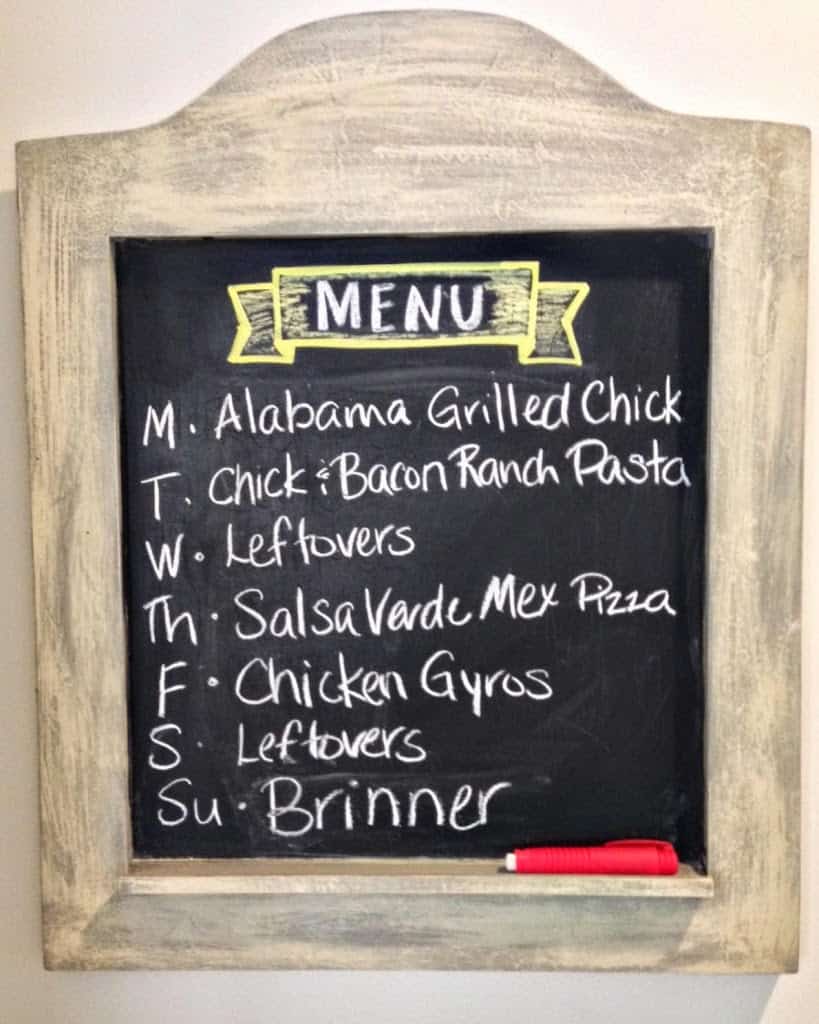 MENU
M. Alabama Grilled Chick
T. Chick & Bacon Ranch Pasta
W. Leftovers
Th. Salsa Verde Mex Pizza
F. Chicken Gyros
S. Leftovers
Su. Brinner